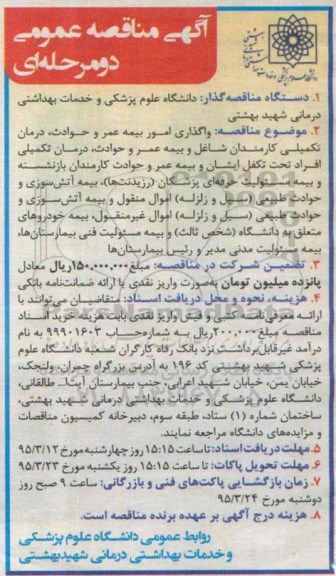 آگهی مناقصه عمومی
دومرحله‌ای
۱. دستگاه مناقصه‌گذار: دانشگاه علوم پزشکی و خدمات بهداشتی
درمانی شهید بهشتی
۲. موضوع مناقصه: واگذاری امور بیمه عمر و حوادث، درمان
تکمیلی کارمندان شاغل و بیمه عمر و حوادث، درمان تکمیلی
افراد تحت تکفل ایشان و بیمه عمر و حوادث کارمندان بازنشسته
و بیمه مسئولیت حرفه‌ای پزشکان (رزیدنت‌ها)، بیمه آتش‌سوزی و
حوادث طبیعی (سیل و زلزله) اموال منقول و بیمه آتش‌سوزی و
حوادث طبیعی (سیل و زلزله) اموال غیرمنقول، بیمه خودروهای
متعلق به دانشگاه (شخص ثالث) و بیمه مسئولیت فنی بیمارستان‌ها،
بیمه مسئولیت مدنی مدیر و رئیس بیمارستان‌ها
۳. تضمین شرکت در مناقصه: مبلغ ۱۵۰.۰۰۰.۰۰۰ ریال معادل
پانزده میلیون تومان به‌صورت واریز نقدی یا ارائه ضمانت‌نامه بانکی
۴. هزینه، نحوه و محل دریافت اسناد: متقاضیان می‌توانند با
ارائه معرفی‌نامه کتبی و فیش واریز نقدی بابت هزینه خرید اسناد
مناقصه مبلغ ۲۰۰.۰۰۰ ریال به شماره‌حساب ۹۹۹۰۱۶۰۳ به نام
درآمد غیرقابل‌برداشت نزد بانک رفاه کارگران شعبه دانشگاه علوم
پزشکی شهید بهشتی کد ۱۹۶ به آدرس بزرگراه چمران، ولنجک،
خیابان یمن، خیابان شهید اعرابی، جنب بیمارستان آیت‌ا... طالقانی،
دانشگاه علوم پزشکی و خدمات بهداشتی درمانی شهید بهشتی،
ساختمان شماره (۱) ستاد، طبقه سوم، دبیرخانه کمیسیون مناقصات
و مزایده‌های دانشگاه مراجعه نمایند.
۵. مهلت دریافت اسناد: تا ساعت ۱۵:۱۵ روز چهارشنبه مورخ ۹۵/۳/۱۲
۶. مهلت تحویل پاکات: تا ساعت ۱۵:۱۵ روز یکشنبه مورخ ۹۵/۳/۲۳
۷. زمان بازگشایی پاکت‌های فنی و بازرگانی: ساعت ۹ صبح روز
دوشنبه مورخ ۹۵/۳/۲۴
۸. هزینه درج آگهی بر عهده برنده مناقصه است.
روابط عمومی دانشگاه علوم پزشکی
و خدمات بهداشتی درمانی شهیدبهشتی